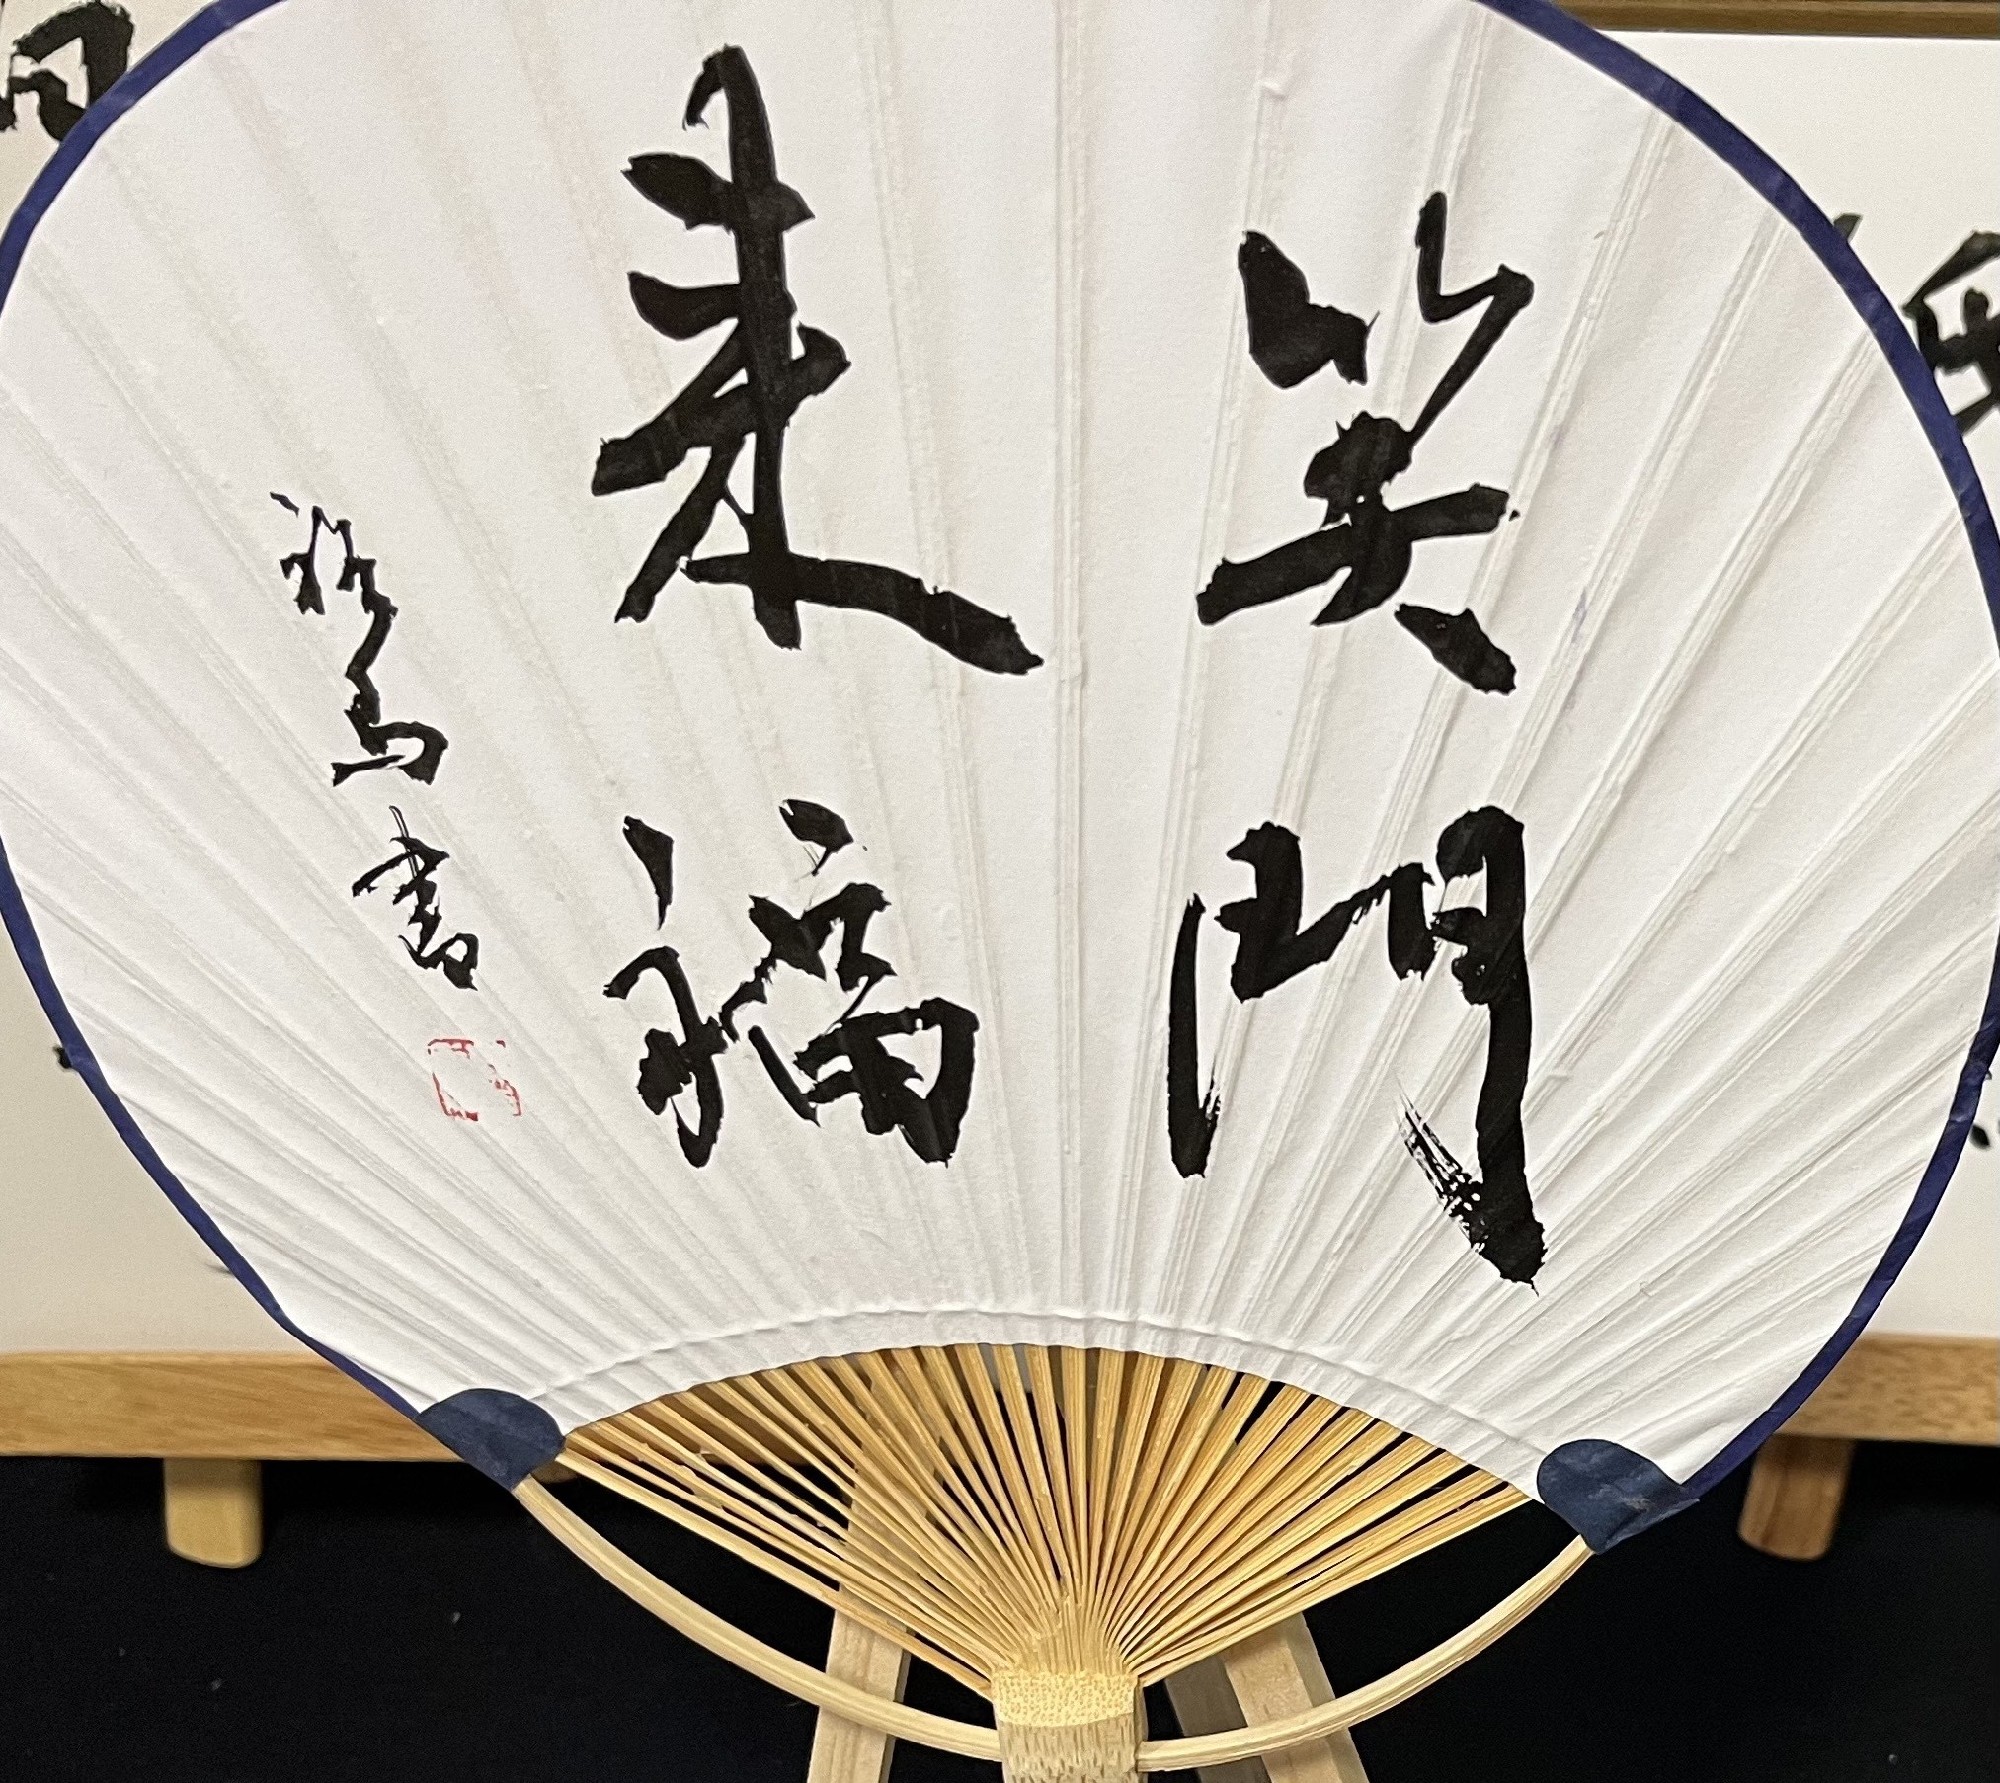 笑門
来福
書